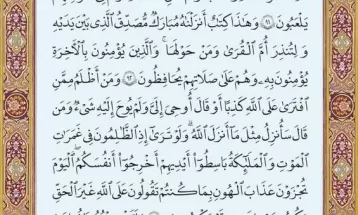 يَلْعَبُونَ ۝٩١ وَهَٰذَا كِتَٰبٌ أَنزَلْنَٰهُ مُبَارَكٌ مُّصَدِّقُ ٱلَّذِى بَيْنَ يَدَيْهِ
وَلِتُنذِرَ أُمَّ ٱلْقُرَىٰ وَمَنْ حَوْلَهَا ۚ وَٱلَّذِينَ يُؤْمِنُونَ بِٱلْءَاخِرَةِ
يُؤْمِنُونَ بِهِۦ ۖ وَهُمْ عَلَىٰ صَلَاتِهِمْ يُحَافِظُونَ ۝٩٢ وَمَنْ أَظْلَمُ مِمَّنِ
ٱفْتَرَىٰ عَلَى ٱللَّهِ كَذِبًا أَوْ قَالَ أُوحِىَ إِلَىَّ وَلَمْ يُوحَ إِلَيْهِ شَىْءٌ وَمَن
قَالَ سَأُنزِلُ مِثْلَ مَآ أَنزَلَ ٱللَّهُ ۗ وَلَوْ تَرَىٰٓ إِذِ ٱلظَّٰلِمُونَ فِى غَمَرَٰتِ
ٱلْمَوْتِ وَٱلْمَلَٰٓئِكَةُ بَاسِطُوٓا۟ أَيْدِيهِمْ أَخْرِجُوٓا۟ أَنفُسَكُمُ ۖ ٱلْيَوْمَ
تُجْزَوْنَ عَذَابَ ٱلْهُونِ بِمَا كُنتُمْ تَقُولُونَ عَلَى ٱللَّهِ غَيْرَ ٱلْحَقِّ